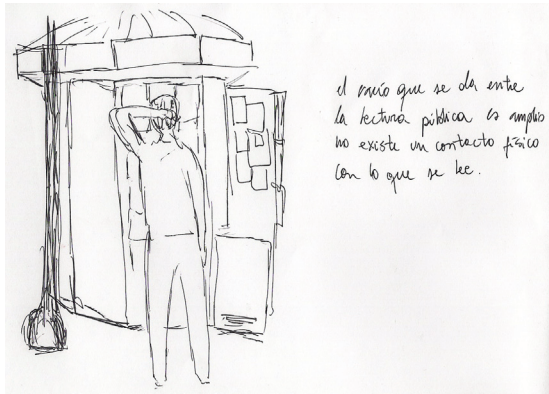 el vacío que se da entre
la lectura pública es amplio
no existe un contacto físico
con lo que se lee.